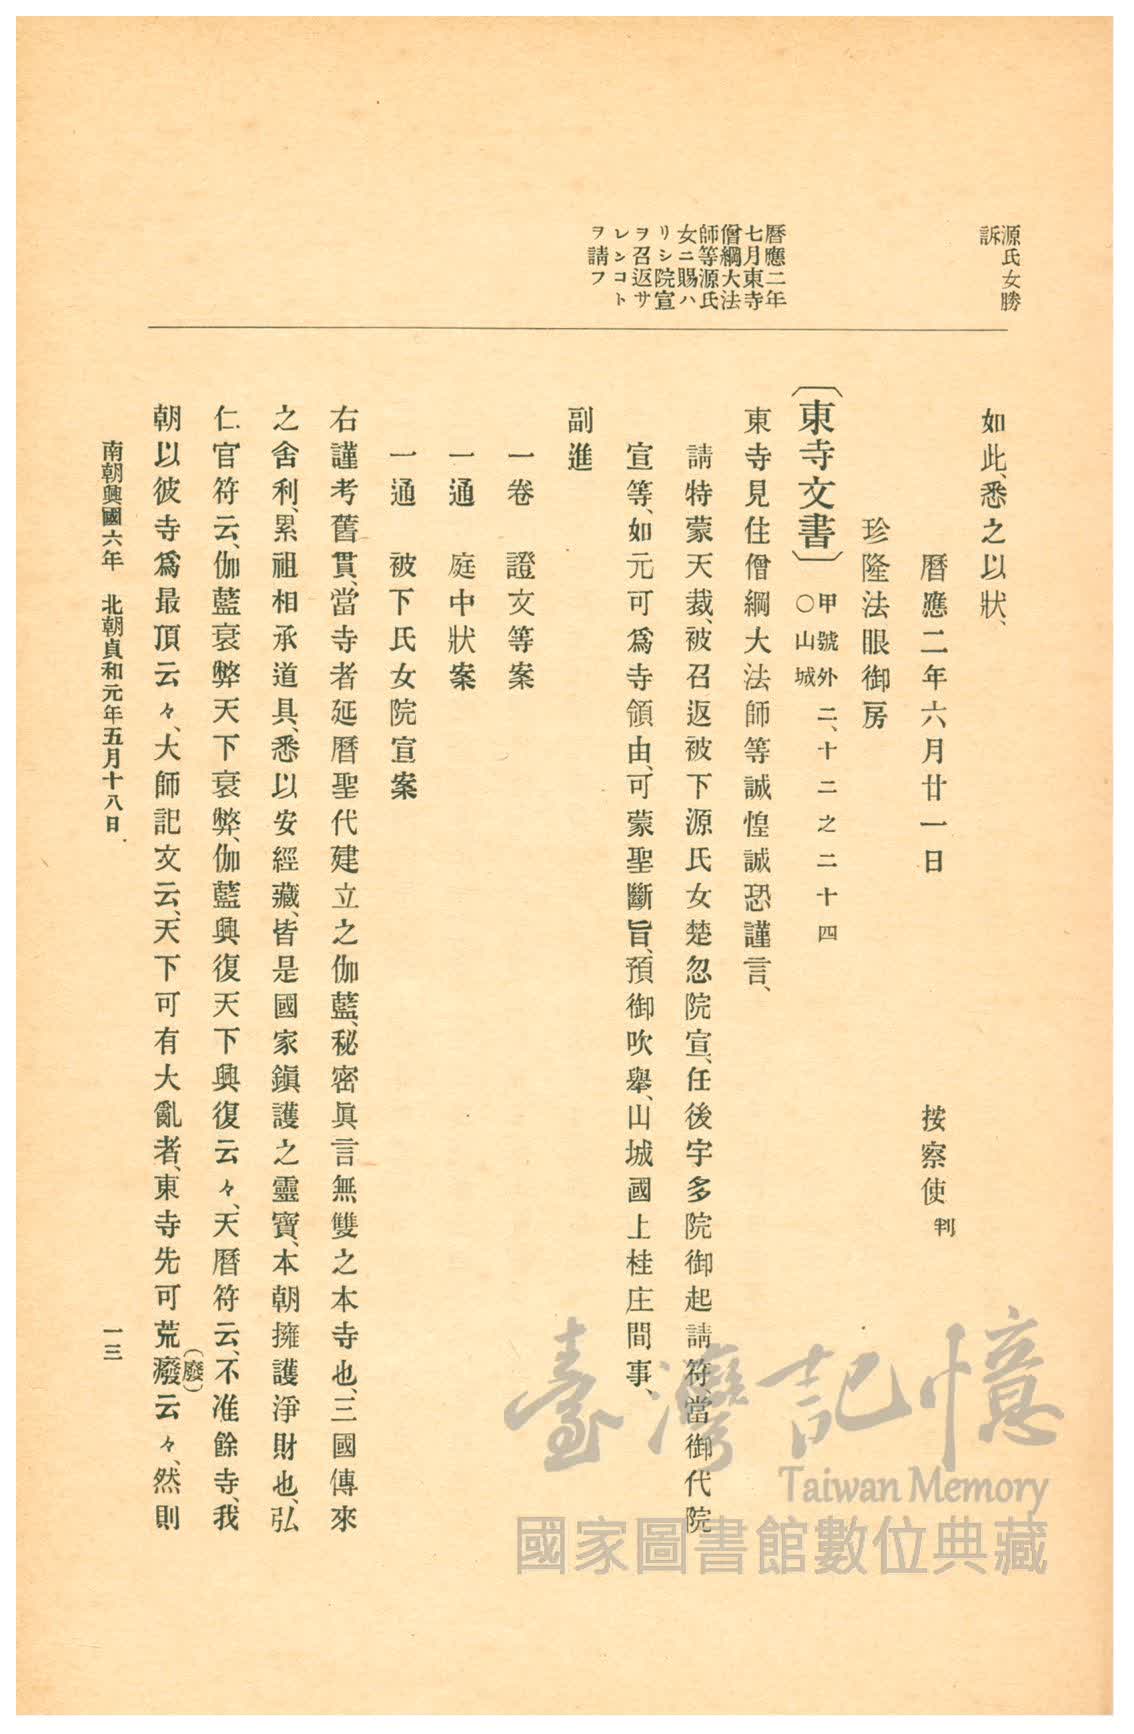 源氏女勝
訴
曆應二年
七月東寺
僧綱大法
師等源氏
女ニ賜ハ
リシ院宣
ヲ召返サ
レンコト
ヲ請フ
如此、悉之以狀、
曆應二年六月廿一日　按察使判
珍隆法眼御房
〔東寺文書〕○山城　甲號外二、十二之二十四
東寺見住僧綱大法師等誠惶誠恐謹言、
請特蒙天裁、被召返被下源氏女楚忽院宣、任後宇多院御起請符、當御代院
宣等、如元可爲寺領由、可蒙聖斷旨、預御吹擧、山城國上桂庄間事、
副進
一卷　證文等案
一通　庭中狀案
一通　被下氏女院宣案
右謹考舊貫、當寺者延曆聖代建立之伽藍、秘密眞言無雙之本寺也、三國傳來
之舍利、累祖相承道具、悉以安經藏、皆是國家鎭護之靈寶、本朝擁護淨財也、弘
仁官符云、伽藍衰弊天下衰弊、伽藍興復天下興復云々、天曆符云、不准餘寺、我
朝以彼寺爲最頂云々、大師記文云、天下可有大亂者、東寺先可荒癈(廢)云々、然則
南朝興國六年　北朝貞和元年五月十八日
一三
臺灣記憶
Taiwan Memory
國家圖書館數位典藏